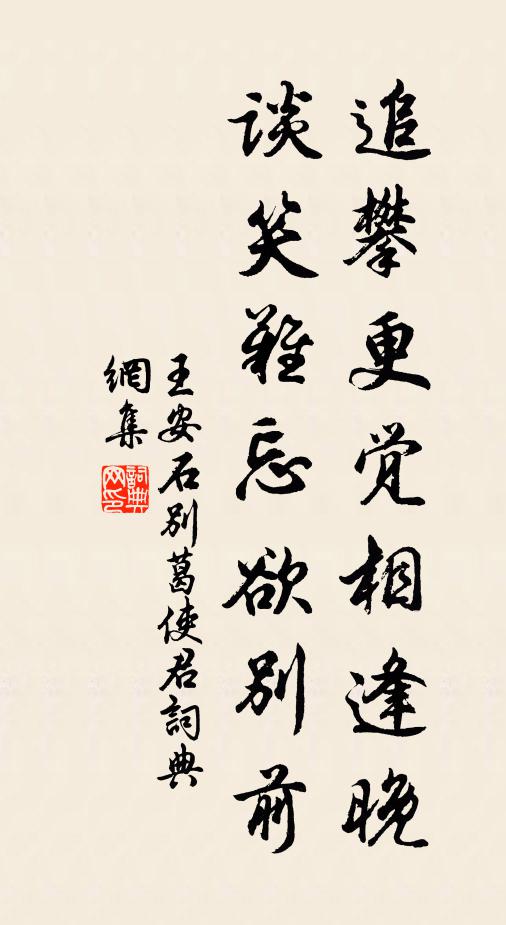 追攀更觉相逢晚
谈笑难忘欲别前
王安石别葛使君詞典
網集
詞典
网印